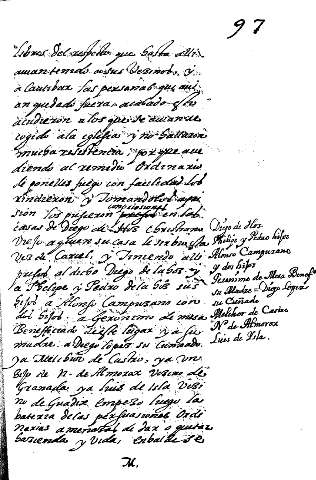 97
libres del respeto que hasta alli
mantenido a sus Vezinos, y
a Cautibar las personas que auj
an quedado fuera acabado esto
acudieron a los que se
cogido a la iglesia y no hallaron
mucha resistencia; porque acu
diendo al remedio Ordinario
de ponelles fuego con facilidad los
rindieron y Tomandolos a pri
sion los pusieron en las
casas de Diego de Hoz christiano
Viejo a quien su casa le serbia
Vez de Carzel, y Teniendo alli
presos al dicho Diego de la Hoz y
a Phelipe y Pedro de la Hoz sus
hijos a Alonso Campuzano con
dos hijos a Geronimo de mesa
Beneficiado de este lugar y a su
madre, a Diego lopez su Cuñado
ya Melchior de Castro, ya Vn
hijo de N. de Almorox Vezino de
Granada, ya luis de Isla Vezi
no de Guadix Empezo luego la
bateria de las persuasiones Ordi
narias amenazas de dar o quitar
hazienda y Vida, en balde se
Diego de Hoz
Phelipe y Pedro hijos
Alonso Campuzano
y dos hijos
Geronimo de Mesa Benefdo
su Madre = Diego
su Cuñado
Melchior de Castro
N. de Almorox
Luis de Isla.
M.